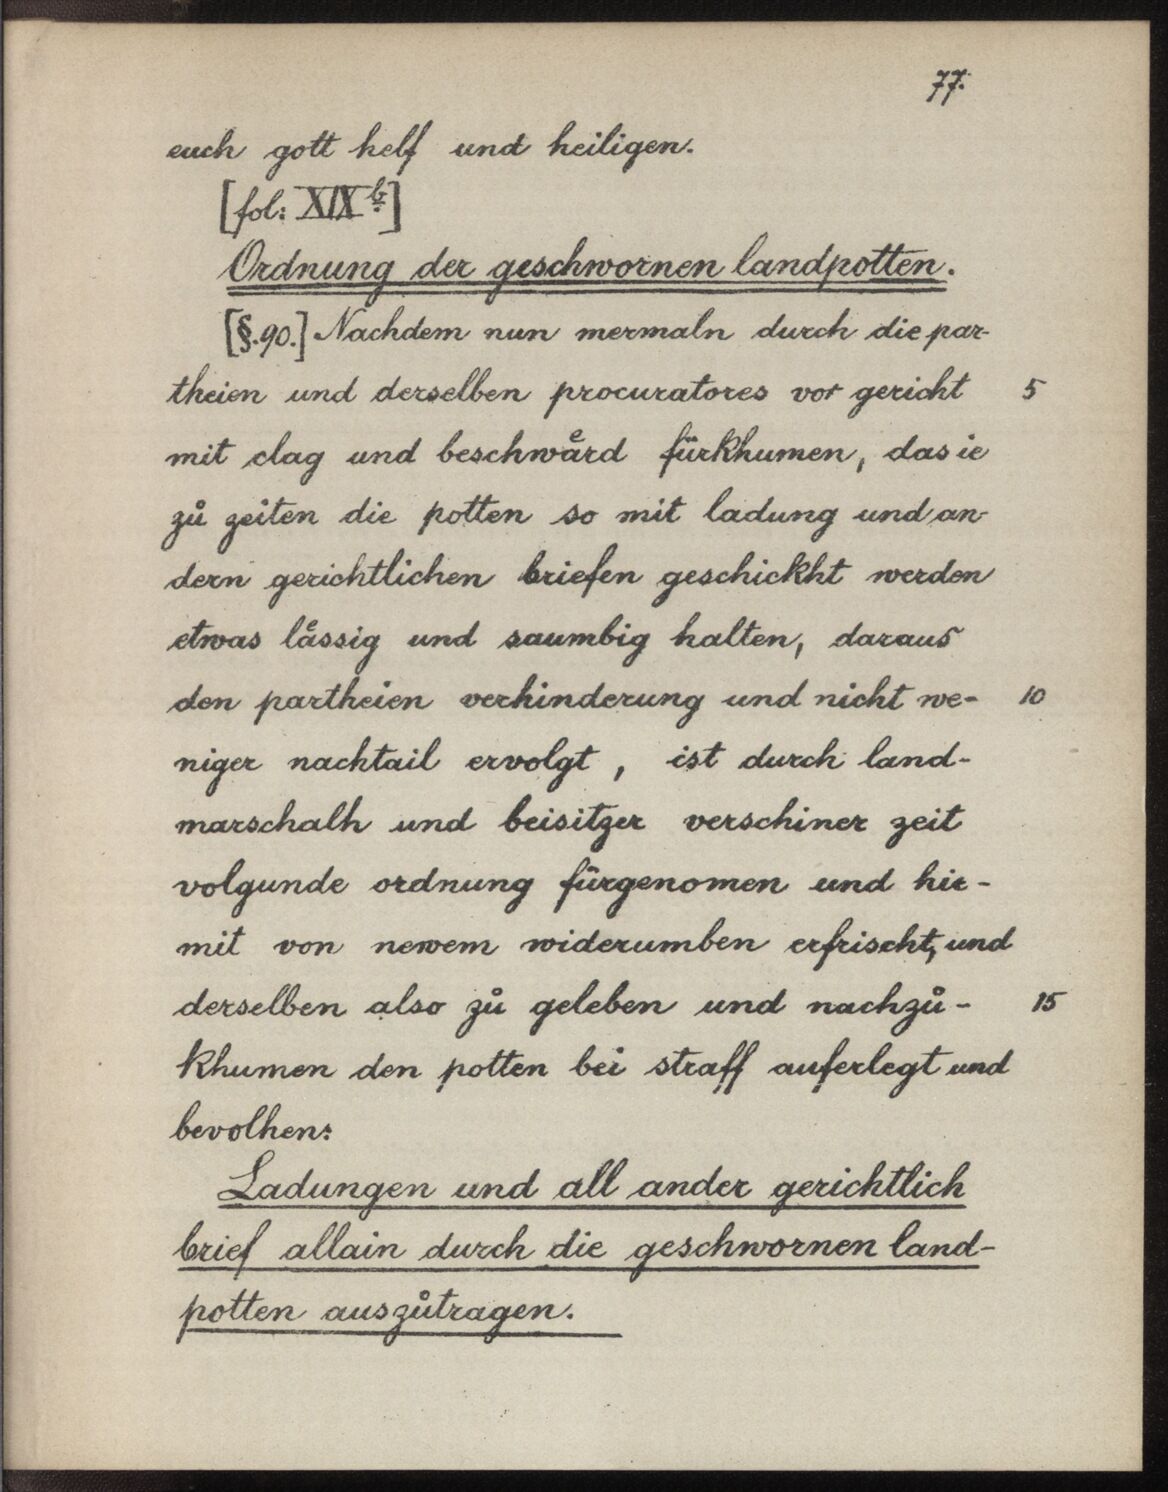 77.
euch gott helf und heiligen.
[fol: XIX b.]
Ordnung der geschwornen landpotten.
[§.90.] Nachdem nun mermaln durch die par-
theien und derselben procuratores vor gericht 5
mit clag und beschwaͤrd fürkhumen, das ie
zů zeiten die potten so mit ladung und an-
dern gerichtlichen briefen geschickht werden
etwas laͤssig und saumbig halten, daraus
den partheien verhinderung und nicht we- 10
niger nachtail ervolgt, ist durch land-
marschalh und beisitzer verschiner zeit
volgunde ordnung fürgenomen und hie-
mit von newem widerumben erfrischt, und
derselben also zů geleben und nachzů- 15
khumen den potten bei straff auferlegt und
bevolhen:
Ladungen und all ander gerichtlich
brief allain durch die geschwornen land-
potten auszůtragen.